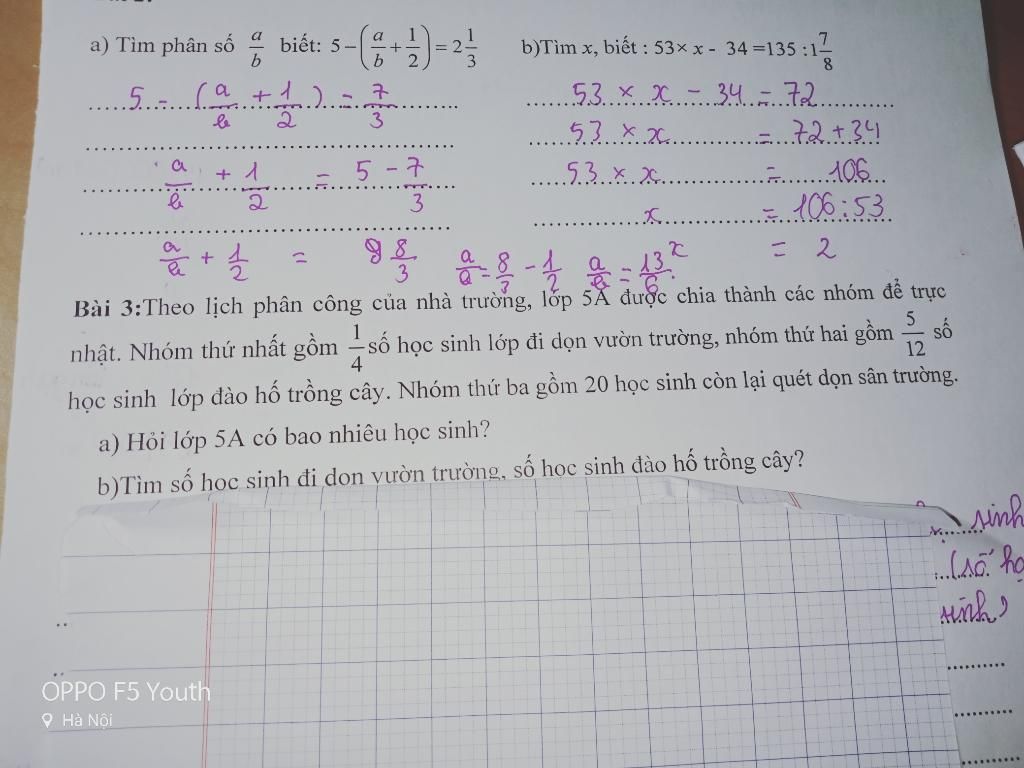 a) Tìm phân số a/b biết: 5 − (a/b + 1/2) = 2 1/3
b)Tìm x, biết : 53× x - 34 =135 :1 7/8
5 - (a/b + 1/2) = 7/3
53 × x - 34 = 72
53 × x = 72 + 34
a/b + 1/2 = 5 - 7/3
53 × x = 106
x = 106 : 53
a/b + 1/2 = 8/3
a/b = 8/3 - 1/2
a/b = 13/6
x = 2
Bài 3:Theo lịch phân công của nhà trường, lớp 5A được chia thành các nhóm để trực
nhật. Nhóm thứ nhất gồm 1/4 số học sinh lớp đi dọn vườn trường, nhóm thứ hai gồm 5/12 số
học sinh lớp đào hố trồng cây. Nhóm thứ ba gồm 20 học sinh còn lại quét dọn sân trường.
a) Hỏi lớp 5A có bao nhiêu học sinh?
b)Tìm số học sinh đi dọn vườn trường, số học sinh đào hố trồng cây?
sinh
(số họ
sinh)
OPPO F5 Youth
Hà Nội